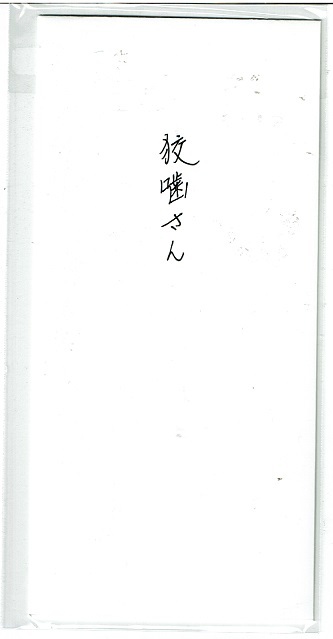 狡噛さん